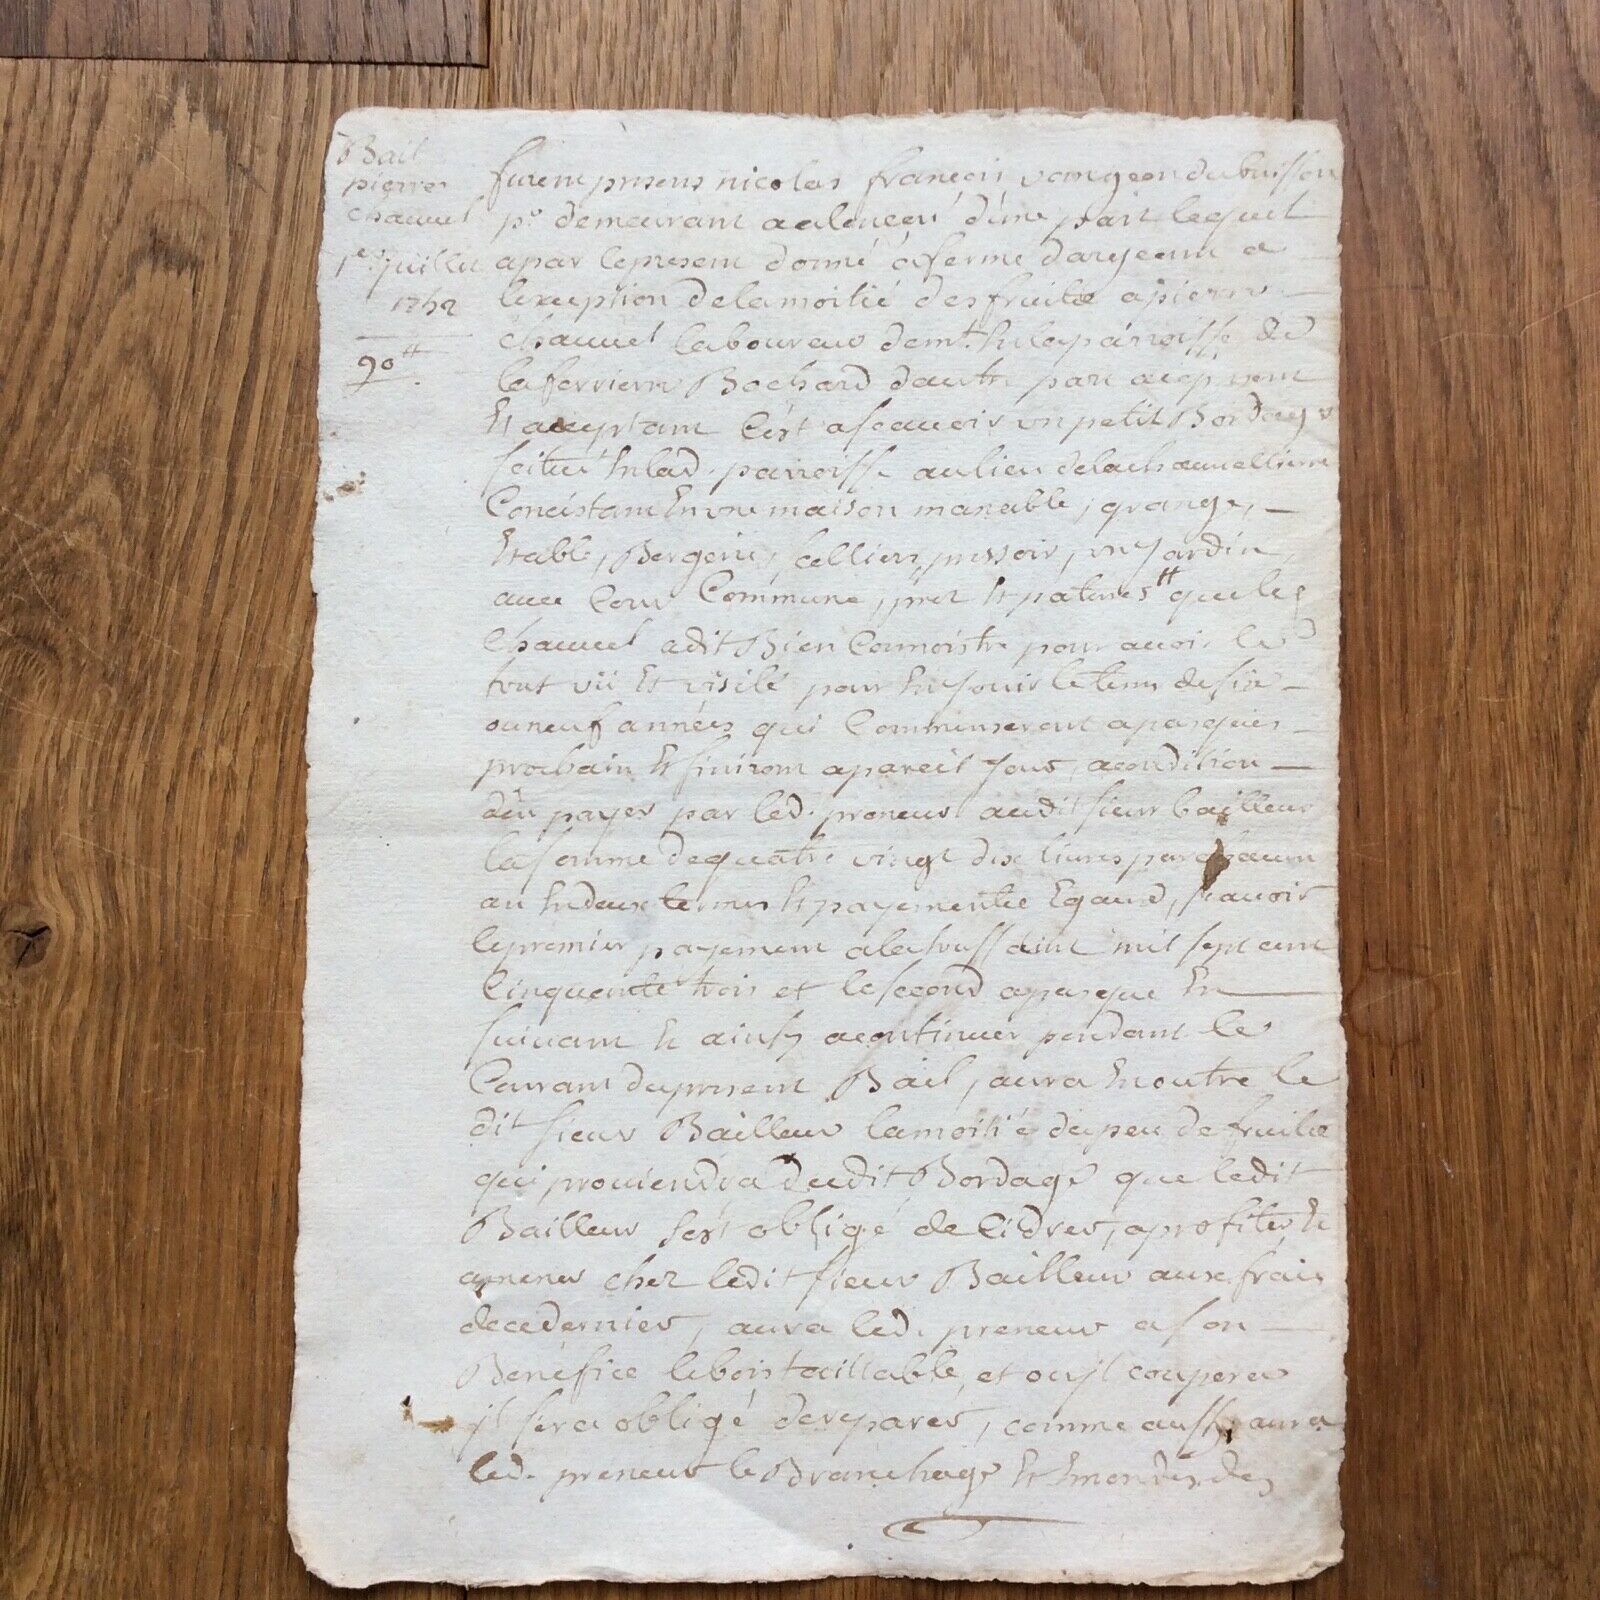 Bail
pierre
chauvel
1er juillet
1752
90tt
furent presens nicolas françois vangeon dubuisson
pr demeurant a alencon d'une part lequel
a par le present donné a ferme d'argeant a
lexception de la moitié des fruits a pierre
chauvel laboureur demt. En la parroisse de
la ferriere Bochard d'autre part a ce present
Et acceptant C'est a scauoir un petit Bordage
scitué En lad. parroisse au lieu de la chauvelliere
Concistant En une maison manable, grange,
Etable, Bergerie, cellier, pressoir, un jardin,
avec Cour Commune, prez Et patures tt que led
Chauvel a dit Bien Connoistre pour auoir le
tout vü Et visité pour En jouir le tems de six
ou neuf années qui Commenseront a pasques
prochain Et finiront a pareil jour, a condition
d'en payer par led. preneur audit sieur bailleur
la somme de quatre vingt dix livres par chacun
an En deux termes Et payements Egaud, scauoir
le premier payement a la toussaint mil sept cent
Cinquante trois et le second a pasque En
suivant Et ainsy a continuer pendant le
Courant du present Bail, aura En outre le
dit sieur Bailleur la moitié du peu de fruits
qui proviendra dudit Bordage que ledit
Bailleur s'est obligé de Cidrer, a profiter Et
amener chez ledit sieur Bailleur aux frais
de ce dernier, aura led. preneur a son
Benefice le bois taillable, et ou jl coupera
jl sera obligé de reparer, comme aussy aura
led. preneur le Branchage Et Emondes des